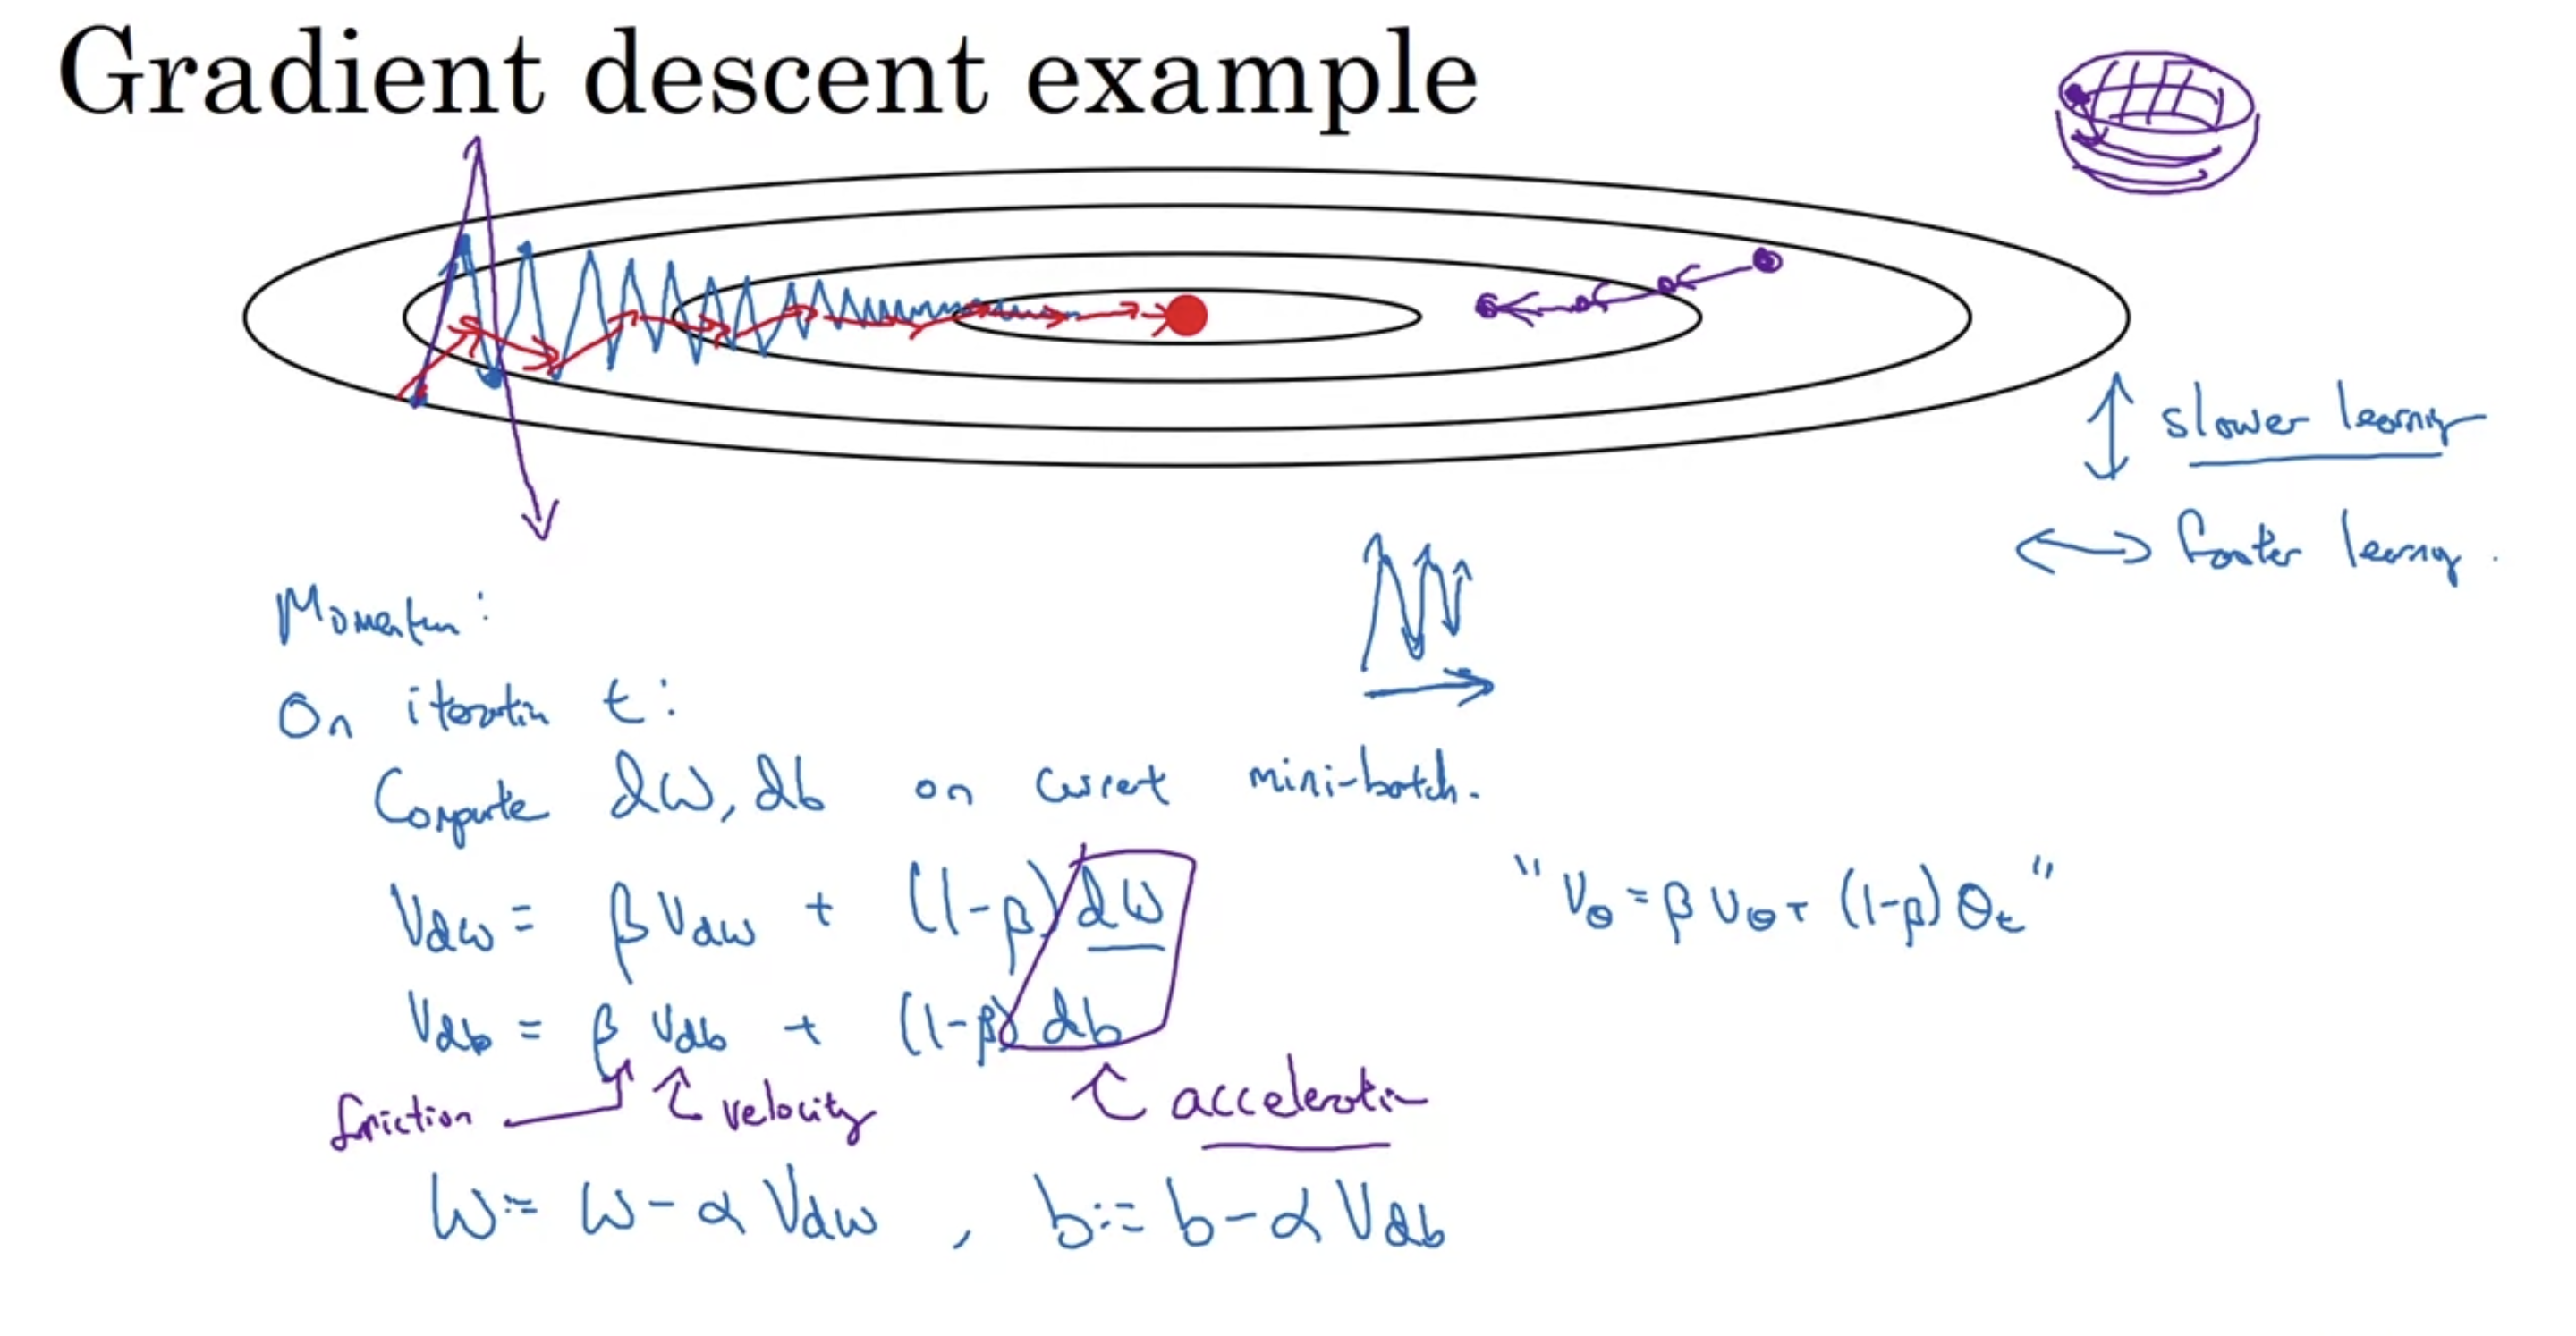 Gradient descent example
↕ slower learning
↔ faster learning.
Momentum:
On iteration t:
Compute dW, db on current mini-batch.
V_dw = β V_dw + (1-β) dW
"V_θ = β V_θ + (1-β) θ_t"
V_db = β V_db + (1-β) db
friction
velocity
acceleration
W := W - α V_dw , b := b - α V_db